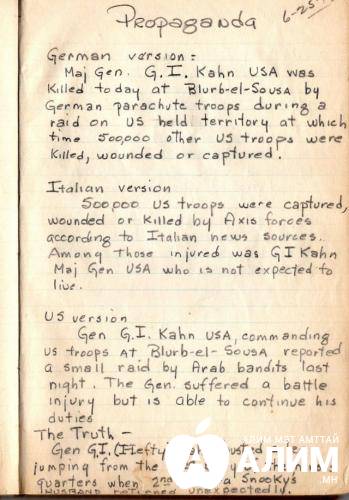 Propaganda
6-25-
German version:
Maj Gen. G.I. Kahn USA was
killed today at Blurb-el-Sousa by
German parachute troops during a
raid on US held territory at which
time 500,000 other US troops were
killed, wounded or captured.
Italian version
500,000 US troops were captured,
wounded or killed by Axis forces
according to Italian news sources.
Among those injured was GI Kahn
Maj Gen USA who is not expected to
live.
US version
Gen G.I. Kahn USA, commanding
US troops at Blurb-el-Sousa reported
a small raid by Arab bandits last
night. The Gen. suffered a battle
injury but is able to continue his
duties
The Truth -
Gen G.I. (Hefty)
jumping from the
quarters when 2nd a Snooky's
husband returned unexpectedly
АЛИМ МЭТ АМТТАЙ
АЛИМ.МН